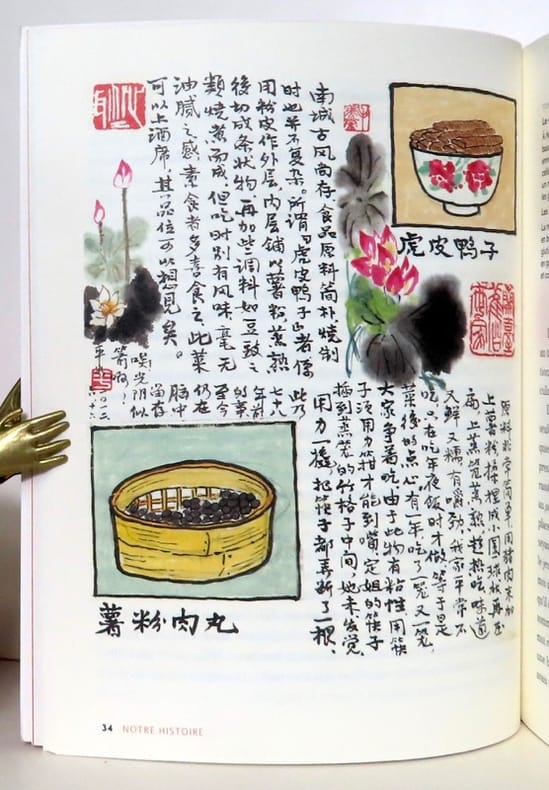 虎皮鸭子
南城古风尚存，食品原料简朴，烧制
时也并不复杂。所谓“虎皮鸭子”者，僅
用粉皮作外层，内层铺以薯粉，蒸熟
後切成条状物，再加些调料如豆豉之
類烧煮而成，但吃时别有风味，毫无
油腻之感，素食者多喜食之，此菜
可以上酒席，其品位可以想见矣。
原料非常简单，用猪肉末和
上薯粉揉捏成小圆球状，再逐
上蒸笼蒸熟，趁热吃，味道
又鲜又糯，有嚼劲，我家平常不
吃，只在吃年夜饭时才做，等于是
菜後的点心。有一年，吃了一笼又一笼，
大家争着吃，由于此物有粘性，用筷
子须用力箝才能到嘴，定姐的筷子
插到蒸笼的竹格子中间，她未发觉，
用力一撬，把筷子都弄断了一根。
此乃
年前
的事，
至今
仍在
脑中
留存
唉！光阴似
箭啊！
薯粉肉丸
34 NOTRE HISTOIRE